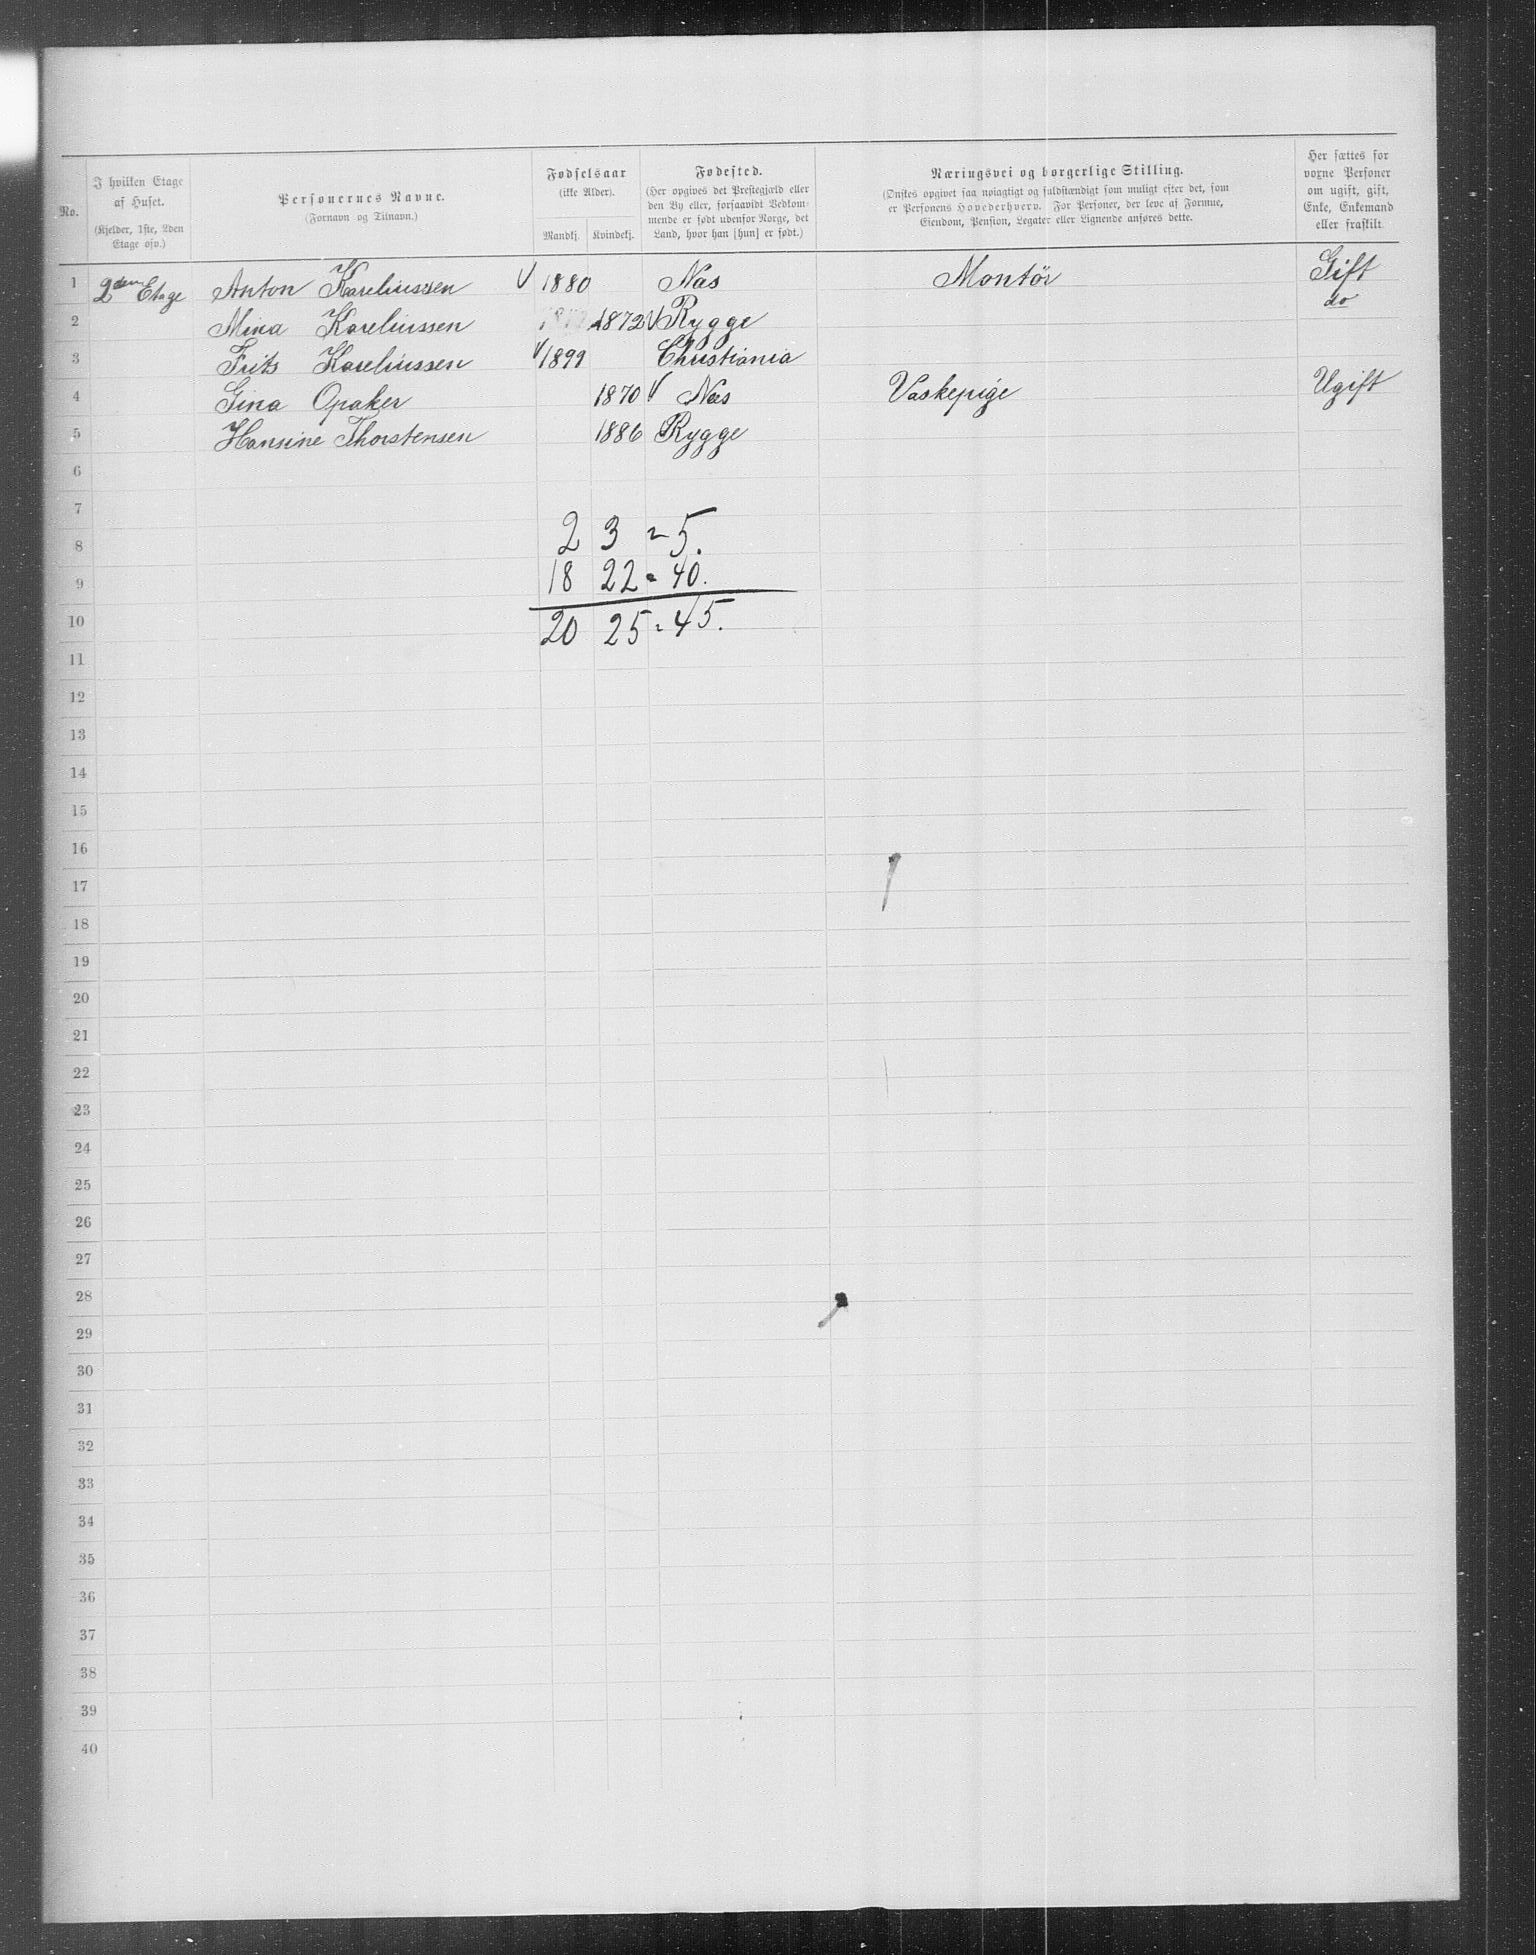 No. | I hvilken Etage af Huset. (Kjelder, 1ste, 2den Etage osv.) | Personernes Navne. (Fornavn og Tilnavn.) | Fødselsaar (ikke Alder). Mandkj. | Kvindekj. | Fødested. (Her opgives det Præstegjæld eller den By eller, forsaavidt Vedkommende er født udenfor Norge, det Land, hvor han [hun] er født.) | Næringsvei og borgerlige Stilling. (Ønskes opgivet saa nøiagtigt og fuldstændigt som muligt efter det, som er Personens Hovederhverv. For Personer, der leve af Formue, Eiendom, Pension, Legater eller Lignende anføres dette.) | Her sættes for voxne Personer om ugift, gift, Enke, Enkemand eller fraskilt
1 2den Etage Anton Kareliussen V 1880 Næs Montör Gift
2 Mina Kareliussen 1872 V Rygge do
3 Frits Kareliussen V 1899 Christiania
4 Gina Opaker 1870 V Næs Vaskepige Ugift
5 Hansine Thorstensen 1886 Rygge
6
7
8 2 3 = 5.
9 18 22 = 40.
10 20 25 = 45.
11
12
13
14
15
16
17
18
19
20
21
22
23
24
25
26
27
28
29
30
31
32
33
34
35
36
37
38
39
40